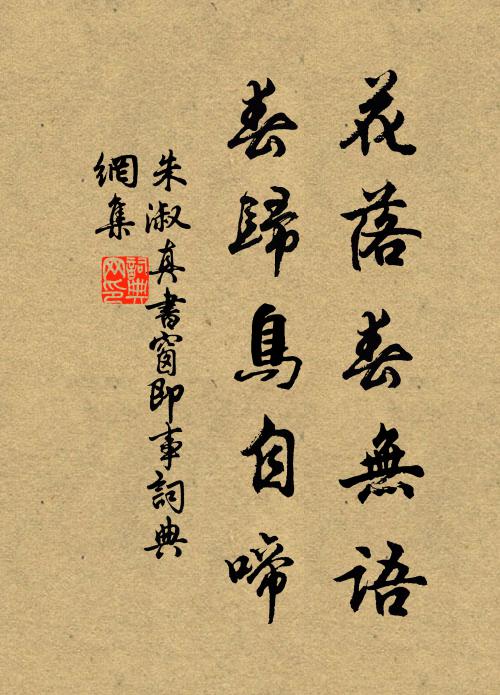 花落春無語
春歸鳥自啼
朱淑真書窗即事詞典
網集
詞典
网印